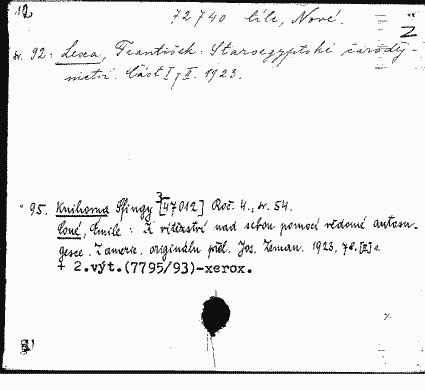 72740 bílé, Nové.
sv. 92: Lexa, František: Staroegyptské čaroděj-
nictví. Část I, II. 1923.
95. Knihovna Sfingy [47012] Roč. 4., sv. 54.
Coué, Émile: K vítězství nad sebou pomocí vědomé autosu-
gesce. Z americ. originálu přel. Jos. Zeman. 1923. 78. [II] s.
+ 2.výt.(7795/93)-xerox.